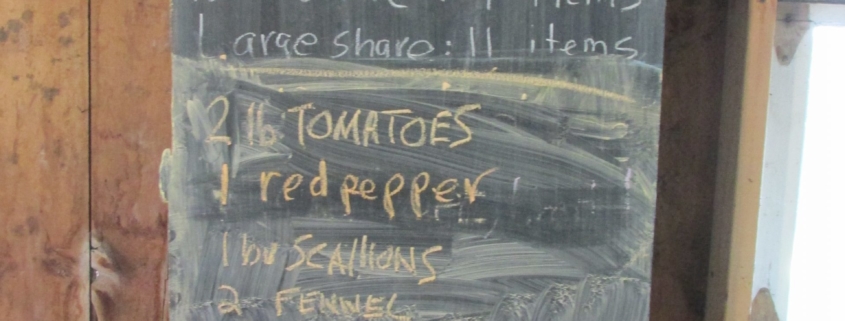 items
Large share: 11 items
2 lb TOMATOES
1 red pepper
1 bu SCAllIONS
2 FENNEL